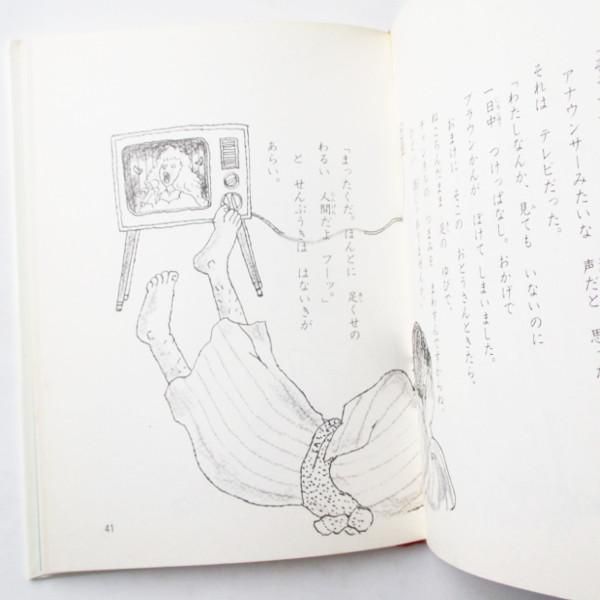 アナウンサーみたいな 声だと 思った
それは テレビだった。
「わたしなんか、見ても いないのに
一日中 つけっぱなし。おかげで
ブラウンかんが ぼけて しまいました。
おまけに そこの おとうさんときたら、
ねころんだまま 足の ゆびで、
つまみを まわすんですからね。
「まったくだ。ほんとに 足くせの
わるい 人間だよ フーッ。」
と せんぷうきは はないきが
あらい。
41